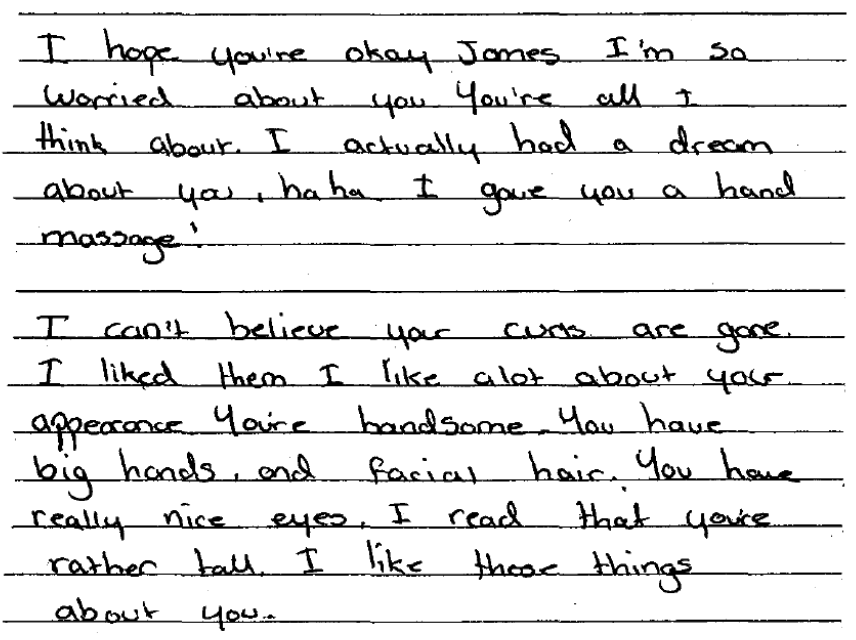 I hope you're okay James I'm so
worried about you You're all I
think about. I actually had a dream
about you, haha. I gave you a hand
massage!
I can't believe your curls are gone.
I liked them I like alot about your
appearance You're handsome. You have
big hands, and facial hair. You have
really nice eyes. I read that you're
rather tall. I like those things
about you.